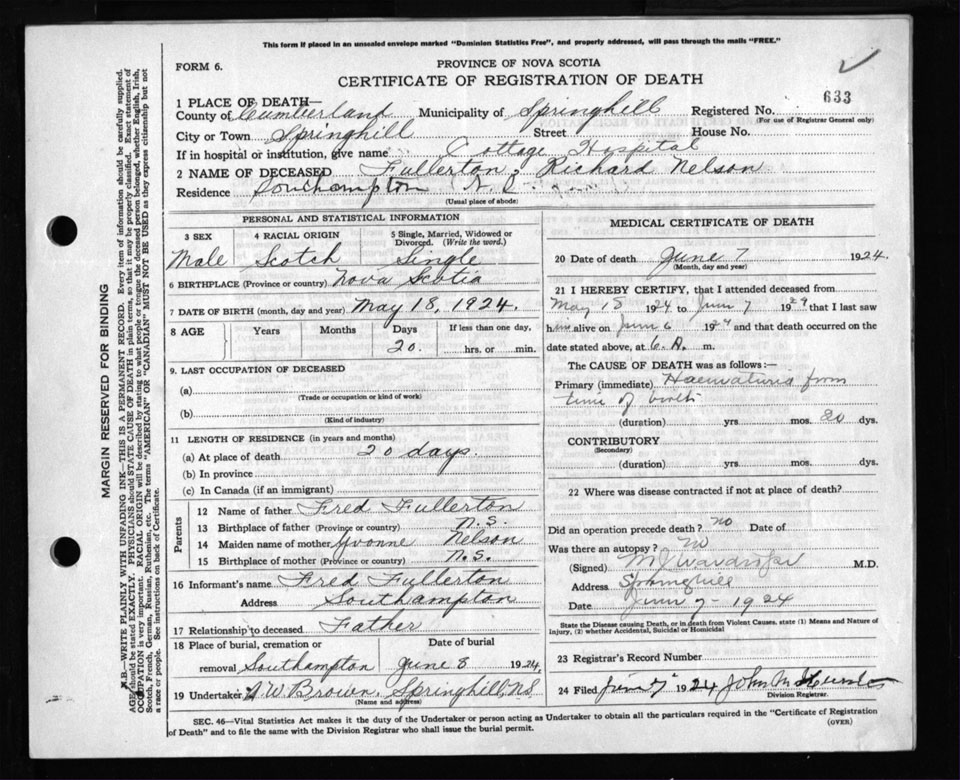 This form if placed in an unsealed envelope marked "Dominion Statistics Free", and properly addressed, will pass through the mails "FREE."
FORM 6.
PROVINCE OF NOVA SCOTIA
CERTIFICATE OF REGISTRATION OF DEATH
1 PLACE OF DEATH—
County of Cumberland Municipality of Springhill Registered No. 633
(For use of Registrar General only)
City or Town Springhill Street House No.
If in hospital or institution, give name Cottage Hospital
2 NAME OF DECEASED Fullerton, Richard Nelson
Residence Southampton N.
(Usual place of abode)
PERSONAL AND STATISTICAL INFORMATION
3 SEX 4 RACIAL ORIGIN 5 Single, Married, Widowed or Divorced. (Write the word.)
Male Scotch Single
6 BIRTHPLACE (Province or country) Nova Scotia
7 DATE OF BIRTH (month, day and year) May 18, 1924.
8 AGE Years Months Days If less than one day,
20. hrs. or min.
9. LAST OCCUPATION OF DECEASED
(a)
(Trade or occupation or kind of work)
(b)
(Kind of industry)
11 LENGTH OF RESIDENCE (in years and months)
(a) At place of death 20 days.
(b) In province
(c) In Canada (if an immigrant)
Parents
12 Name of father Fred Fullerton
13 Birthplace of father (Province or country) N.S.
14 Maiden name of mother Yvonne Nelson
15 Birthplace of mother (Province or country) N.S.
16 Informant's name Fred Fullerton
Address Southampton
17 Relationship to deceased Father
18 Place of burial, cremation or removal Date of burial
Southampton June 8 1924
19 Undertaker A W Brown, Springhill, NS
(Name and address)
MEDICAL CERTIFICATE OF DEATH
20 Date of death June 7 1924.
(Month, day and year)
21 I HEREBY CERTIFY, that I attended deceased from
May 18 1924 to June 7 1924 that I last saw
him alive on June 6 1924 and that death occurred on the
date stated above, at 6. A. m.
The CAUSE OF DEATH was as follows:—
Primary (immediate) Haematuria from
time of birth
(duration) yrs. mos. 20 dys.
CONTRIBUTORY
(Secondary)
(duration) yrs. mos. dys.
22 Where was disease contracted if not at place of death?
Did an operation precede death? no Date of
Was there an autopsy? no
(Signed) M.D.
Address Springhill
Date June 7 - 1924
State the Disease causing Death, or in death from Violent Causes. state (1) Means and Nature of Injury, (2) whether Accidental, Suicidal or Homicidal
23 Registrar's Record Number
24 Filed June 7 1924 John
Division Registrar.
SEC. 46—Vital Statistics Act makes it the duty of the Undertaker or person acting as Undertaker to obtain all the particulars required in the "Certificate of Registration of Death" and to file the same with the Division Registrar who shall issue the burial permit.
(OVER)
MARGIN RESERVED FOR BINDING
N.B.—WRITE PLAINLY WITH UNFADING INK—THIS IS A PERMANENT RECORD. Every item of information should be carefully supplied.
AGE should be stated EXACTLY. PHYSICIANS should STATE CAUSE OF DEATH in plain terms, so that it may be properly classified. Exact statement of
OCCUPATION is very important. RACIAL ORIGIN will be described by stating to what people or tongue the deceased person belonged, whether English, Irish,
Scotch, French, German, Russian, Ruthenian, etc. The terms "AMERICAN" OR "CANADIAN" MUST NOT BE USED as they express citizenship but not
a race or people. See instructions on back of Certificate.